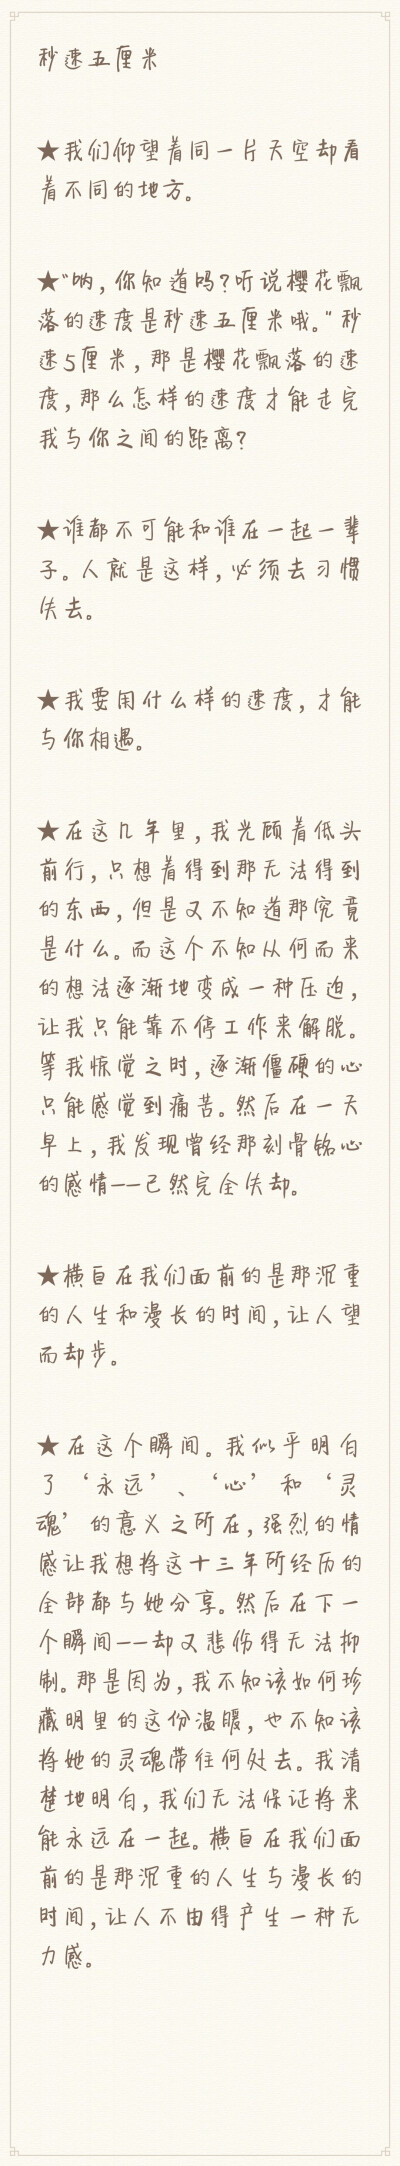 秒速五厘米
★我们仰望着同一片天空却看
着不同的地方。
★“呐，你知道吗？听说樱花飘
落的速度是秒速五厘米哦。”秒
速5厘米，那是樱花飘落的速
度，那么怎样的速度才能走完
我与你之间的距离？
★谁都不可能和谁在一起一辈
子。人就是这样，必须去习惯
失去。
★我要用什么样的速度，才能
与你相遇。
★在这几年里，我光顾着低头
前行，只想着得到那无法得到
的东西，但是又不知道那究竟
是什么。而这个不知从何而来
的想法逐渐地变成一种压迫，
让我只能靠不停工作来解脱。
等我惊觉之时，逐渐僵硬的心
只能感觉到痛苦。然后在一天
早上，我发现曾经那刻骨铭心
的感情——已然完全失却。
★横亘在我们面前的是那沉重
的人生和漫长的时间，让人望
而却步。
★在这个瞬间。我似乎明白
了‘永远’、‘心’和‘灵
魂’的意义之所在，强烈的情
感让我想将这十三年所经历的
全部都与她分享。然后在下一
个瞬间——却又悲伤得无法抑
制。那是因为，我不知该如何珍
藏明里的这份温暖，也不知该
将她的灵魂带往何处去。我清
楚地明白，我们无法保证将来
能永远在一起。横亘在我们面
前的是那沉重的人生与漫长的
时间，让人不由得产生一种无
力感。